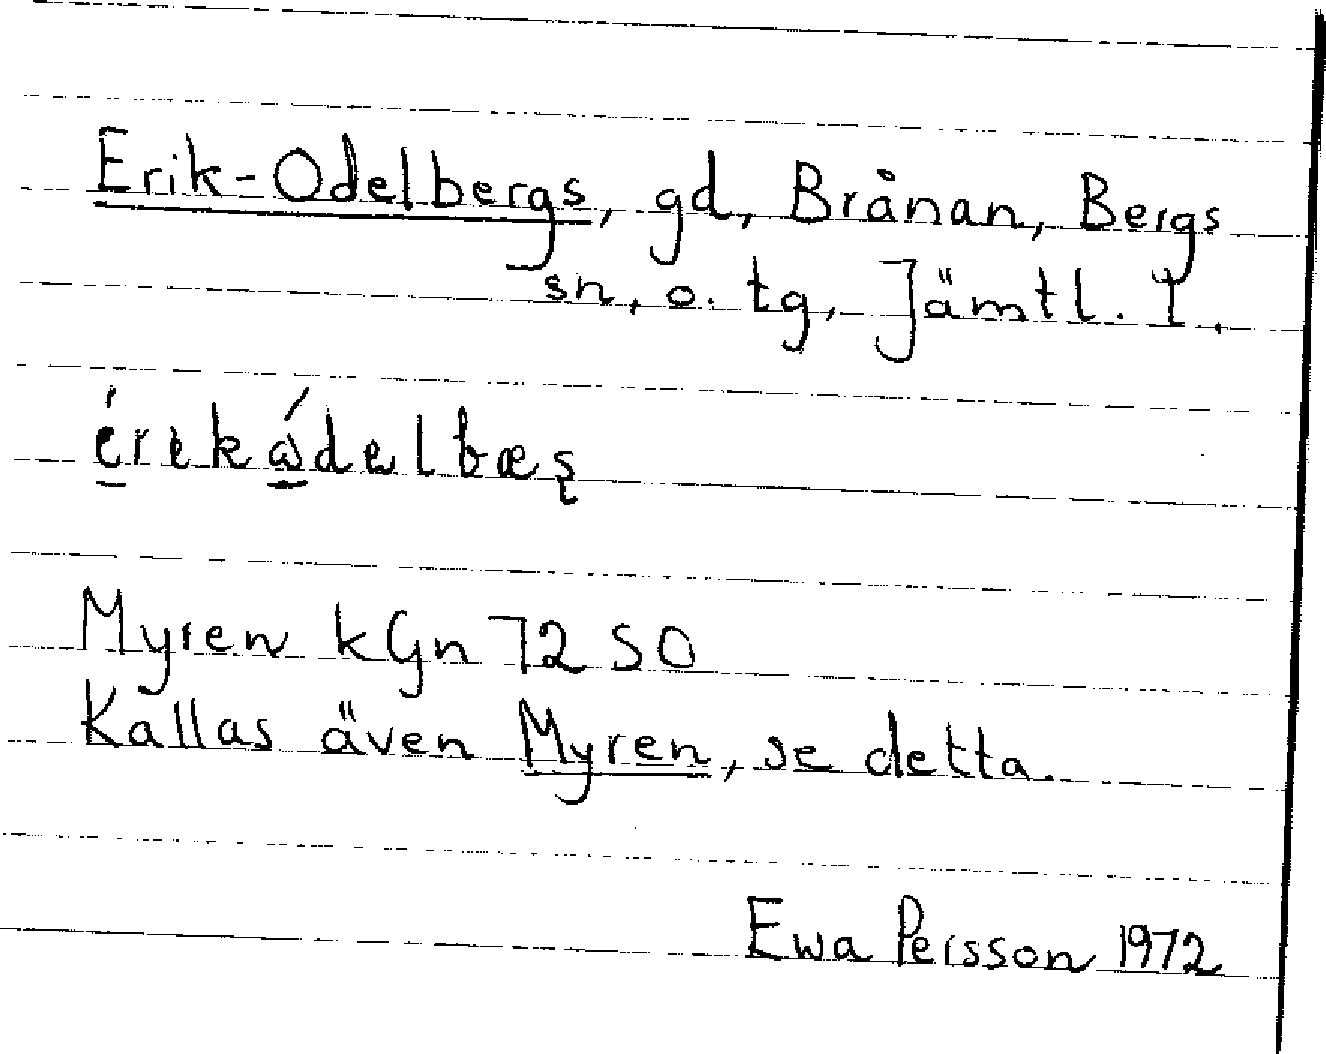 Erik-Odelbergs, gd, Brånan, Bergs
sn, o. tg, Jämtl. l.
Myren kGn 72 SO
Kallas även Myren, se detta.
Ewa Persson 1972